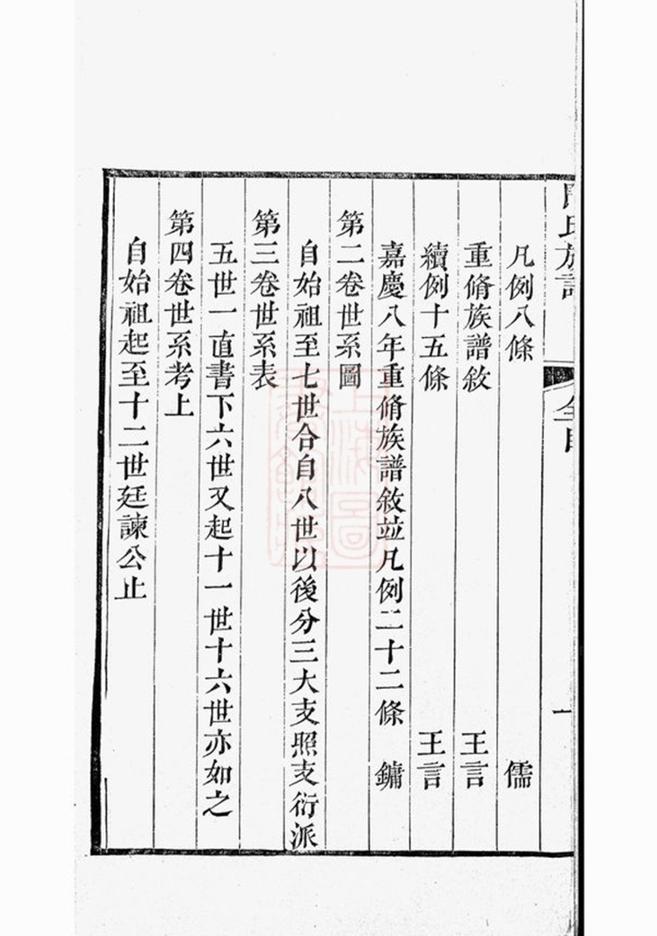 氏族譜
全目
一
凡例八條 儒
重脩族譜敘 王言
續例十五條 王言
嘉慶八年重脩族譜敘並凡例二十二條 鏞
第二卷世系圖
自始祖至七世合自八世以後分三大支照支衍派
第三卷世系表
五世一直書下六世又起十一世十六世亦如之
第四卷世系考上
自始祖起至十二世廷諫公止
上海圖